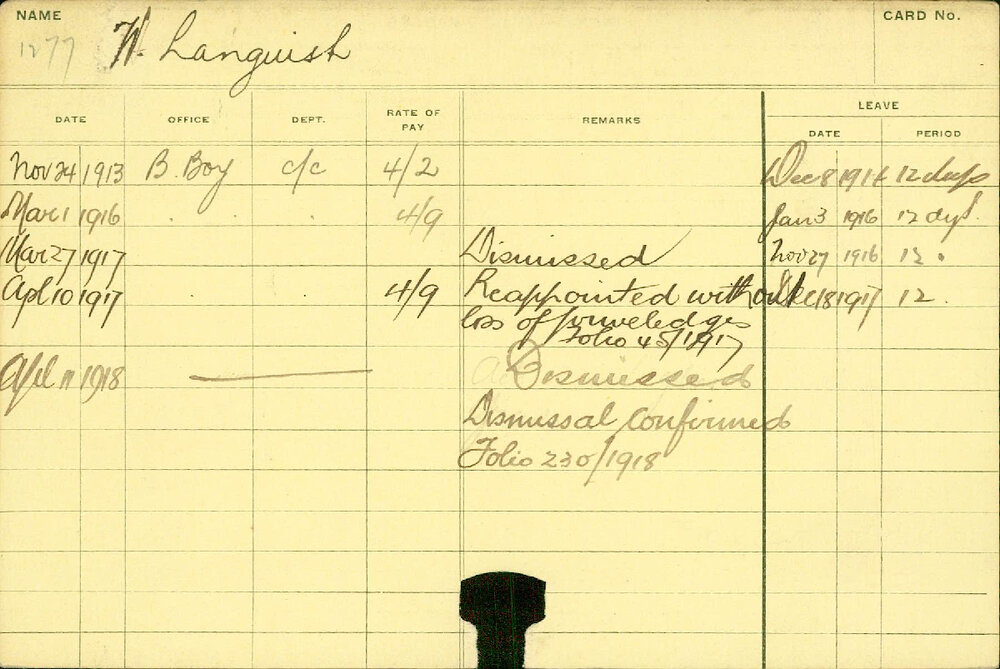 NAME
CARD No.
1277 W. Languish
LEAVE
DATE OFFICE DEPT. RATE OF PAY REMARKS DATE PERIOD
Nov 24 1913 B. Boy c/c 4/2 Dec 8 1914 12 days
Mar 1 1916 . . . . 4/9 Jan 3 1916 12 dys.
Mar 27 1917 Dismissed Nov 27 1916 12 .
Apl 10 1917 . . 4/9 Reappointed without Dec 18 1917 12 .
loss of priveledges
Folio 45/1917
Apl 11 1918 Dismissed
Dismissal Confirmed
Folio 230/1918